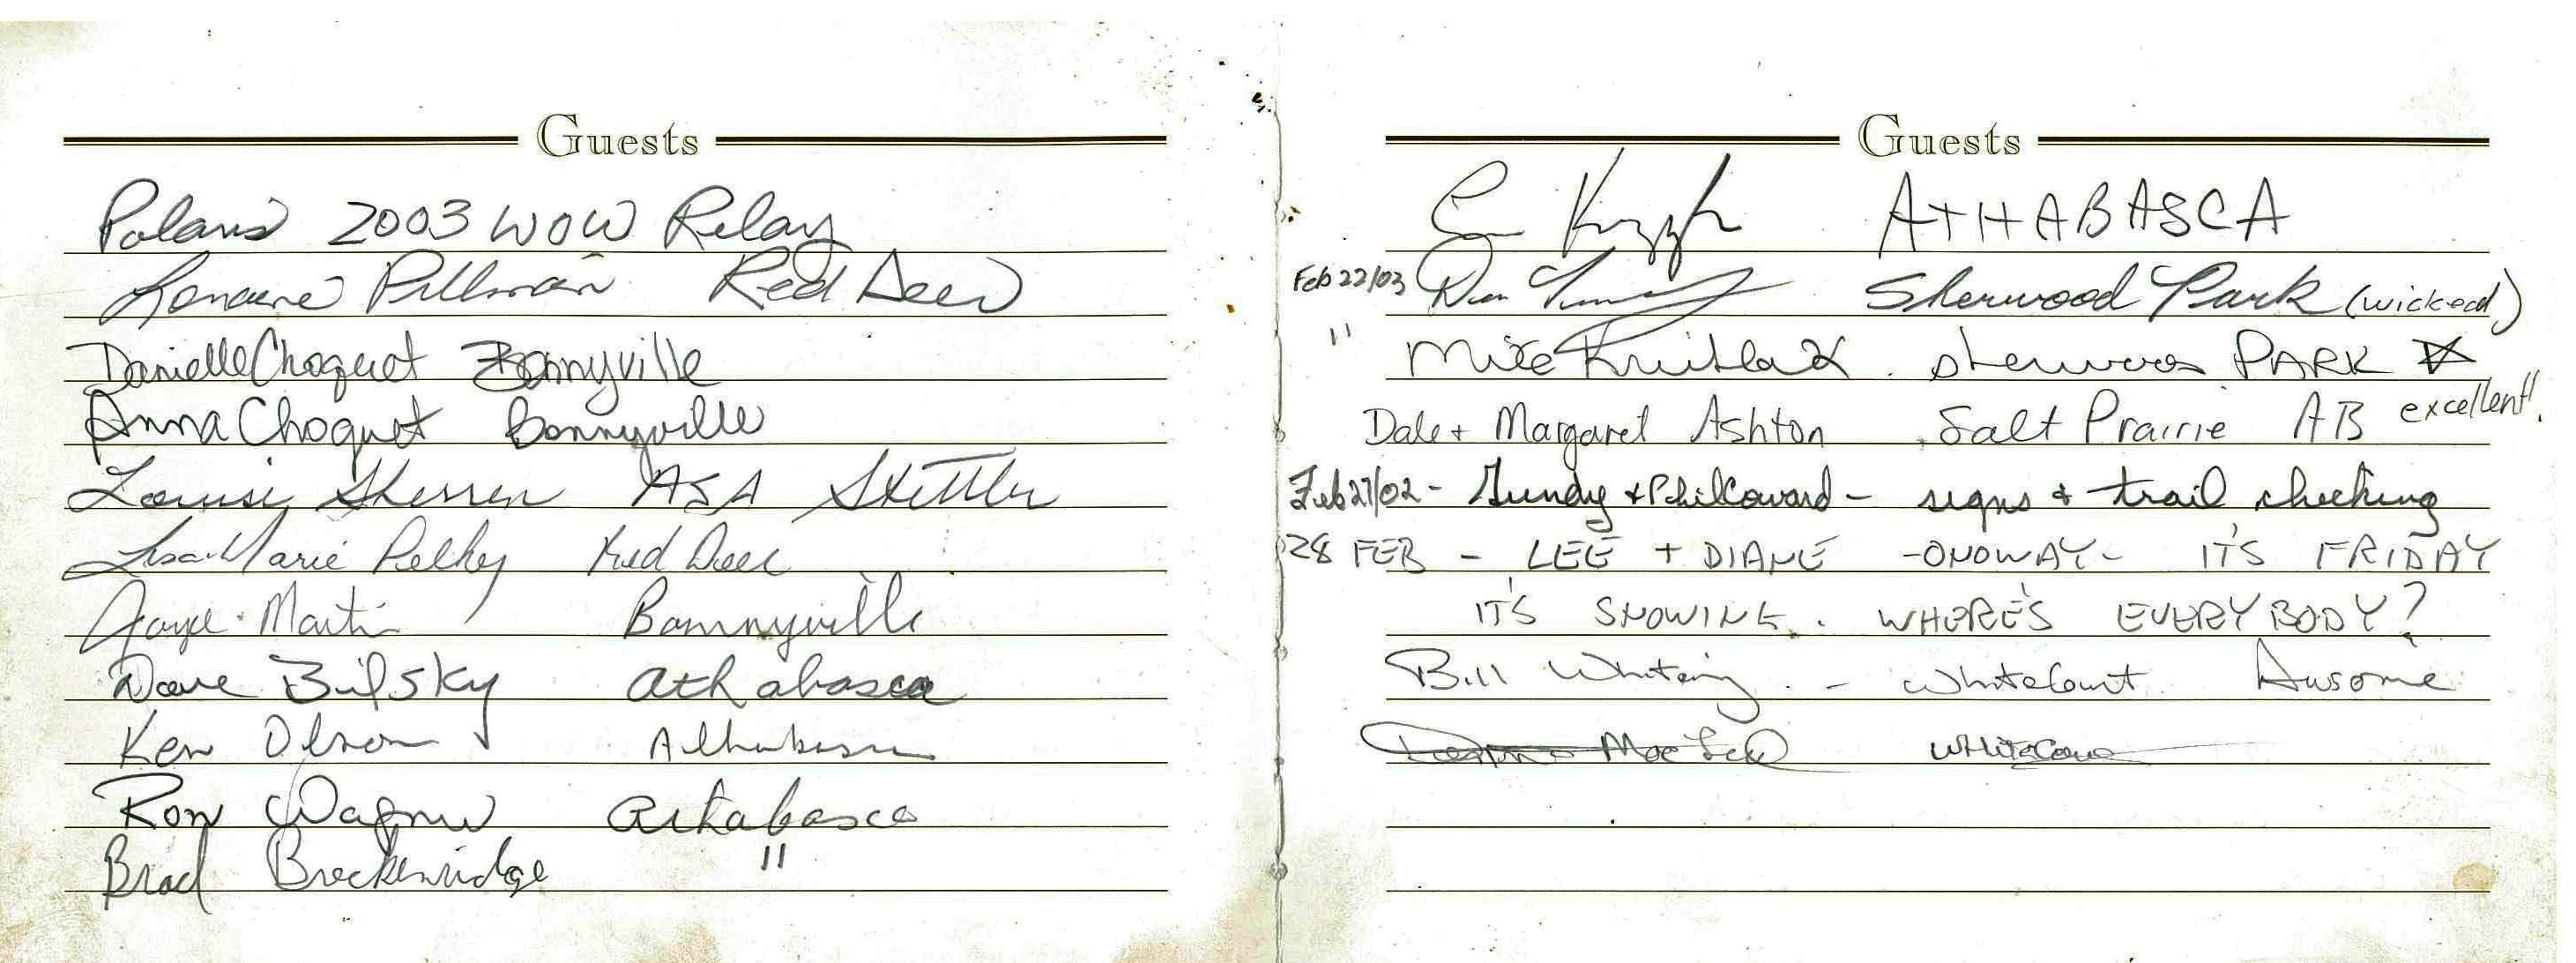 Guests
Polaris 2003 WOW Relay
Lorraine Pillman Red Deer
Danielle Choquet Bonnyville
Anna Choquet Bonnyville
Louise Sherren ASA Stettler
Lisa-Marie Pelkey Red Deer
Joyce Martin Bonnyville
Dave Bilsky Athabasca
Ken Olson Athabasca
Ron Wagner Athabasca
Brad Breckenridge "
Guests
ATHABASCA
Feb 22/03 Sherwood Park (wicked)
" Mike Sherwood PARK
Dale + Margaret Ashton Salt Prairie AB excellent!
Feb 27/02 - & Phil Coward - signs & trail checking
28 FEB - LEE + DIANE - ONOWAY - IT'S FRIDAY
IT'S SNOWING. WHERE'S EVERYBODY?
Bill Whiting - Whitecourt Awsome